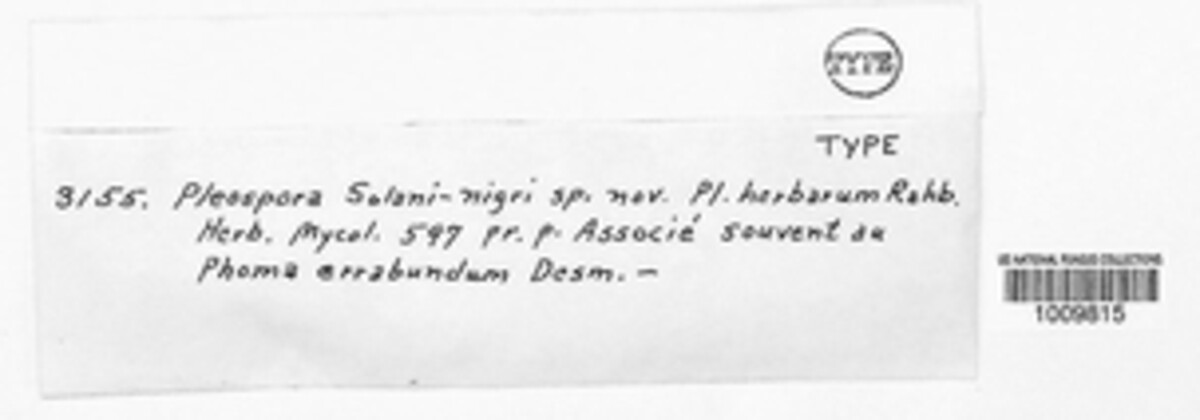 TYPE
3155. Pleospora Solani-nigri sp. nov. Pl. herbarum Rabh.
Herb. Mycol. 547 pr. p. Associé souvent au
Phoma errabundum Desm. —
US NATIONAL FUNGUS COLLECTIONS
1009815